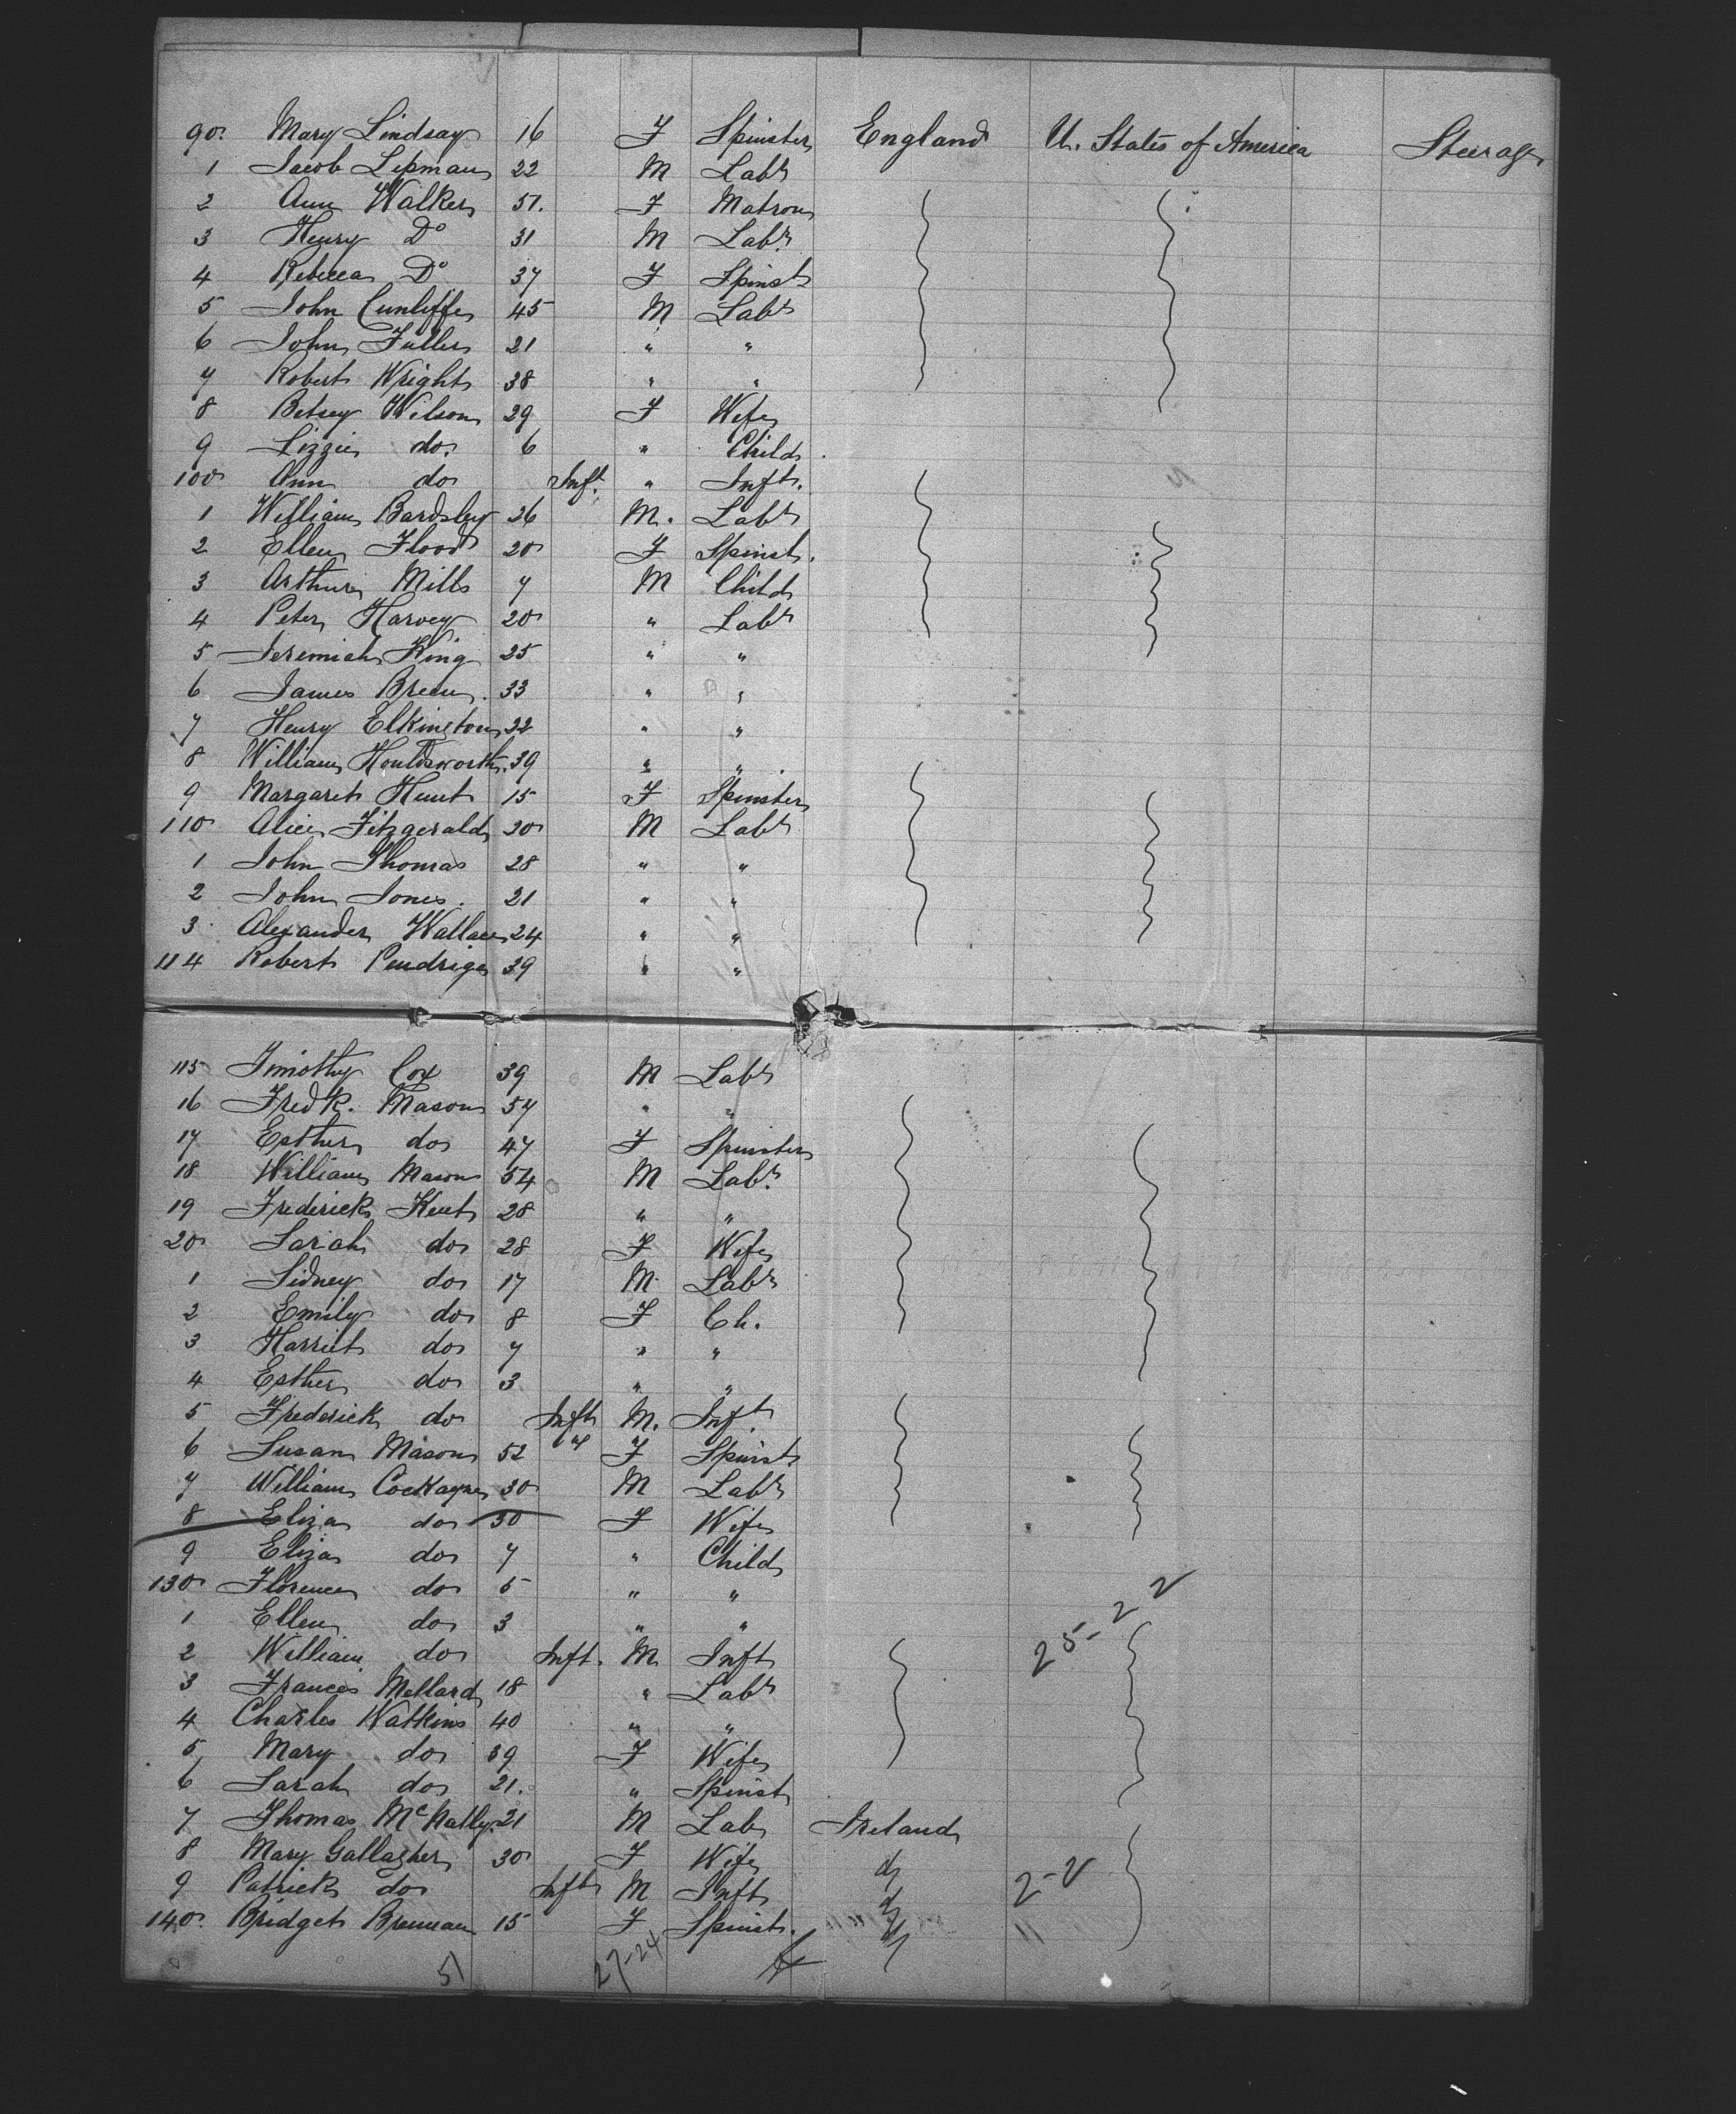 90. Mary Lindsay 16 F Spinster England U. States of America Steerage
1 Jacob Lipman 22 M Labr
2 Ann Walker 51. F Matron
3 Henry Do 31 M Labr
4 Rebecca Do 37 F Spinst
5 John Cunliffe 45 M Labr
6 John Fuller 21 " "
7 Robert Wright 38 " "
8 Betsey Wilson 29 F Wife
9 Lizzie do. 6 " Child
100 Ann do Inft. " Inft.
1 William Bardsley 26 M. Labr
2 Ellen Flood 20 F Spinst.
3 Arthur Mills 7 M Child
4 Peter Harvey 20 " Labr
5 Jeremiah King 25 " "
6 James Breen. 33 " "
7 Henry Elkington 22 " "
8 William Houldsworth. 39 " "
9 Margaret Hunt 15 F Spinster
110 Alice Fitzgerald 20 M Labr
1 John Thomas 28 " "
2 John Jones. 21 " "
3 Alexander Wallace 24 " "
114 Robert Pendrige 39 " "
115 Timothy Cox 39 M Labr
16 Fredk. Mason 57 " "
17 Esther do 47 F Spinster
18 William Mason 54 M Labr
19 Frederick Kent 28 " "
20 Sarah do 28 F Wife
1 Sidney do 17 M Labr
2 Emily do 8 F Ch.
3 Harriet do 7 " "
4 Esther do 3 " "
5 Frederick do Inft M. Inft
6 Susan Mason 52 F Spinst
7 William Cockayne 30 M Labr
8 Eliza do 30 F Wife
9 Eliza do 7 " Child
130 Florence do 5 " "
1 Ellen do 3 " "
2 William do Inft. M Inft 25-2 2
3 Frances Mellard 18 " Labr
4 Charles Watkins 40 " "
5 Mary do 39 F Wife
6 Sarah do 21. " Spinst
7 Thomas McNally 21 M Lab Ireland
8 Mary Gallagher 30 F Wife do
9 Patrick do Inft M Inft do 2-2
140. Bridget Brennan 15 F Spinst. do "
51 27-24